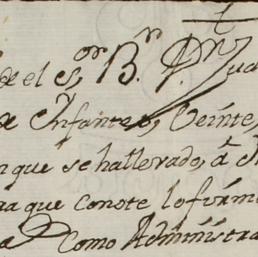 de el S.or B.r D.n Jua
de Infante, Veinte,
que se ha llevado, â
que conste lo firmè
Como Administra